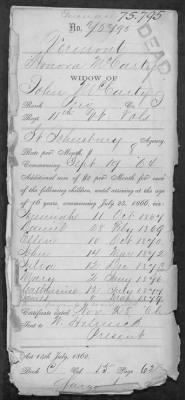 75.795
No. 75795
DEAD
Vermont
Honora McCarty
WIDOW OF
John McCarty
Rank
Reg't 11th Vt Vols
St Johnsbury Agency.
Rate per Month, 8
Commencing Sept 17 64
Additional sum of $2 per Month for each
of the following children, until arriving at the age
of 16 years, commencing July 25, 1866, viz:
11 Oct 1867
Daniel 28 Feby 1869
Ellen 10 Oct 1870
John 14 Mar 1872
Julia 12 Jan 1873
Mary 2 1876
Catharine 12 July 1877
8 1879
Certificate dated Nov 28
Sent to W. Helmick
Present
Act 14th July, 1862.
Book C Vol. 15 Page 62